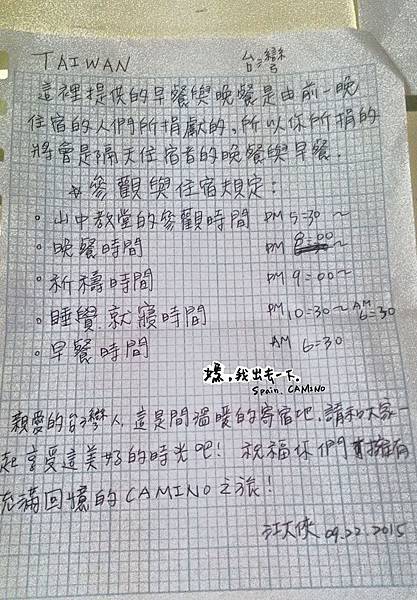 TAIWAN 台灣
這裡提供的早餐與晚餐是由前一晚
住宿的人們所捐獻的,所以你所捐的
將會是隔天住宿者的晚餐與早餐.
☆參觀與住宿規定:
。山中教堂的參觀時間 PM 5:30 ~
。晚餐時間 PM 8:00 ~
。祈禱時間 PM 9:00~
。睡覺.就寢時間 PM 10:30~AM 6:30
。早餐時間 AM 6:30
媽,我出去一下.
Spain. CAMINO
親愛的台灣人,這是間溫暖的寄宿地,請和大家一
起享受這美好的時光吧!祝福你們擁有
充滿回憶的CAMINO之旅!
江大俠 09.22.2015